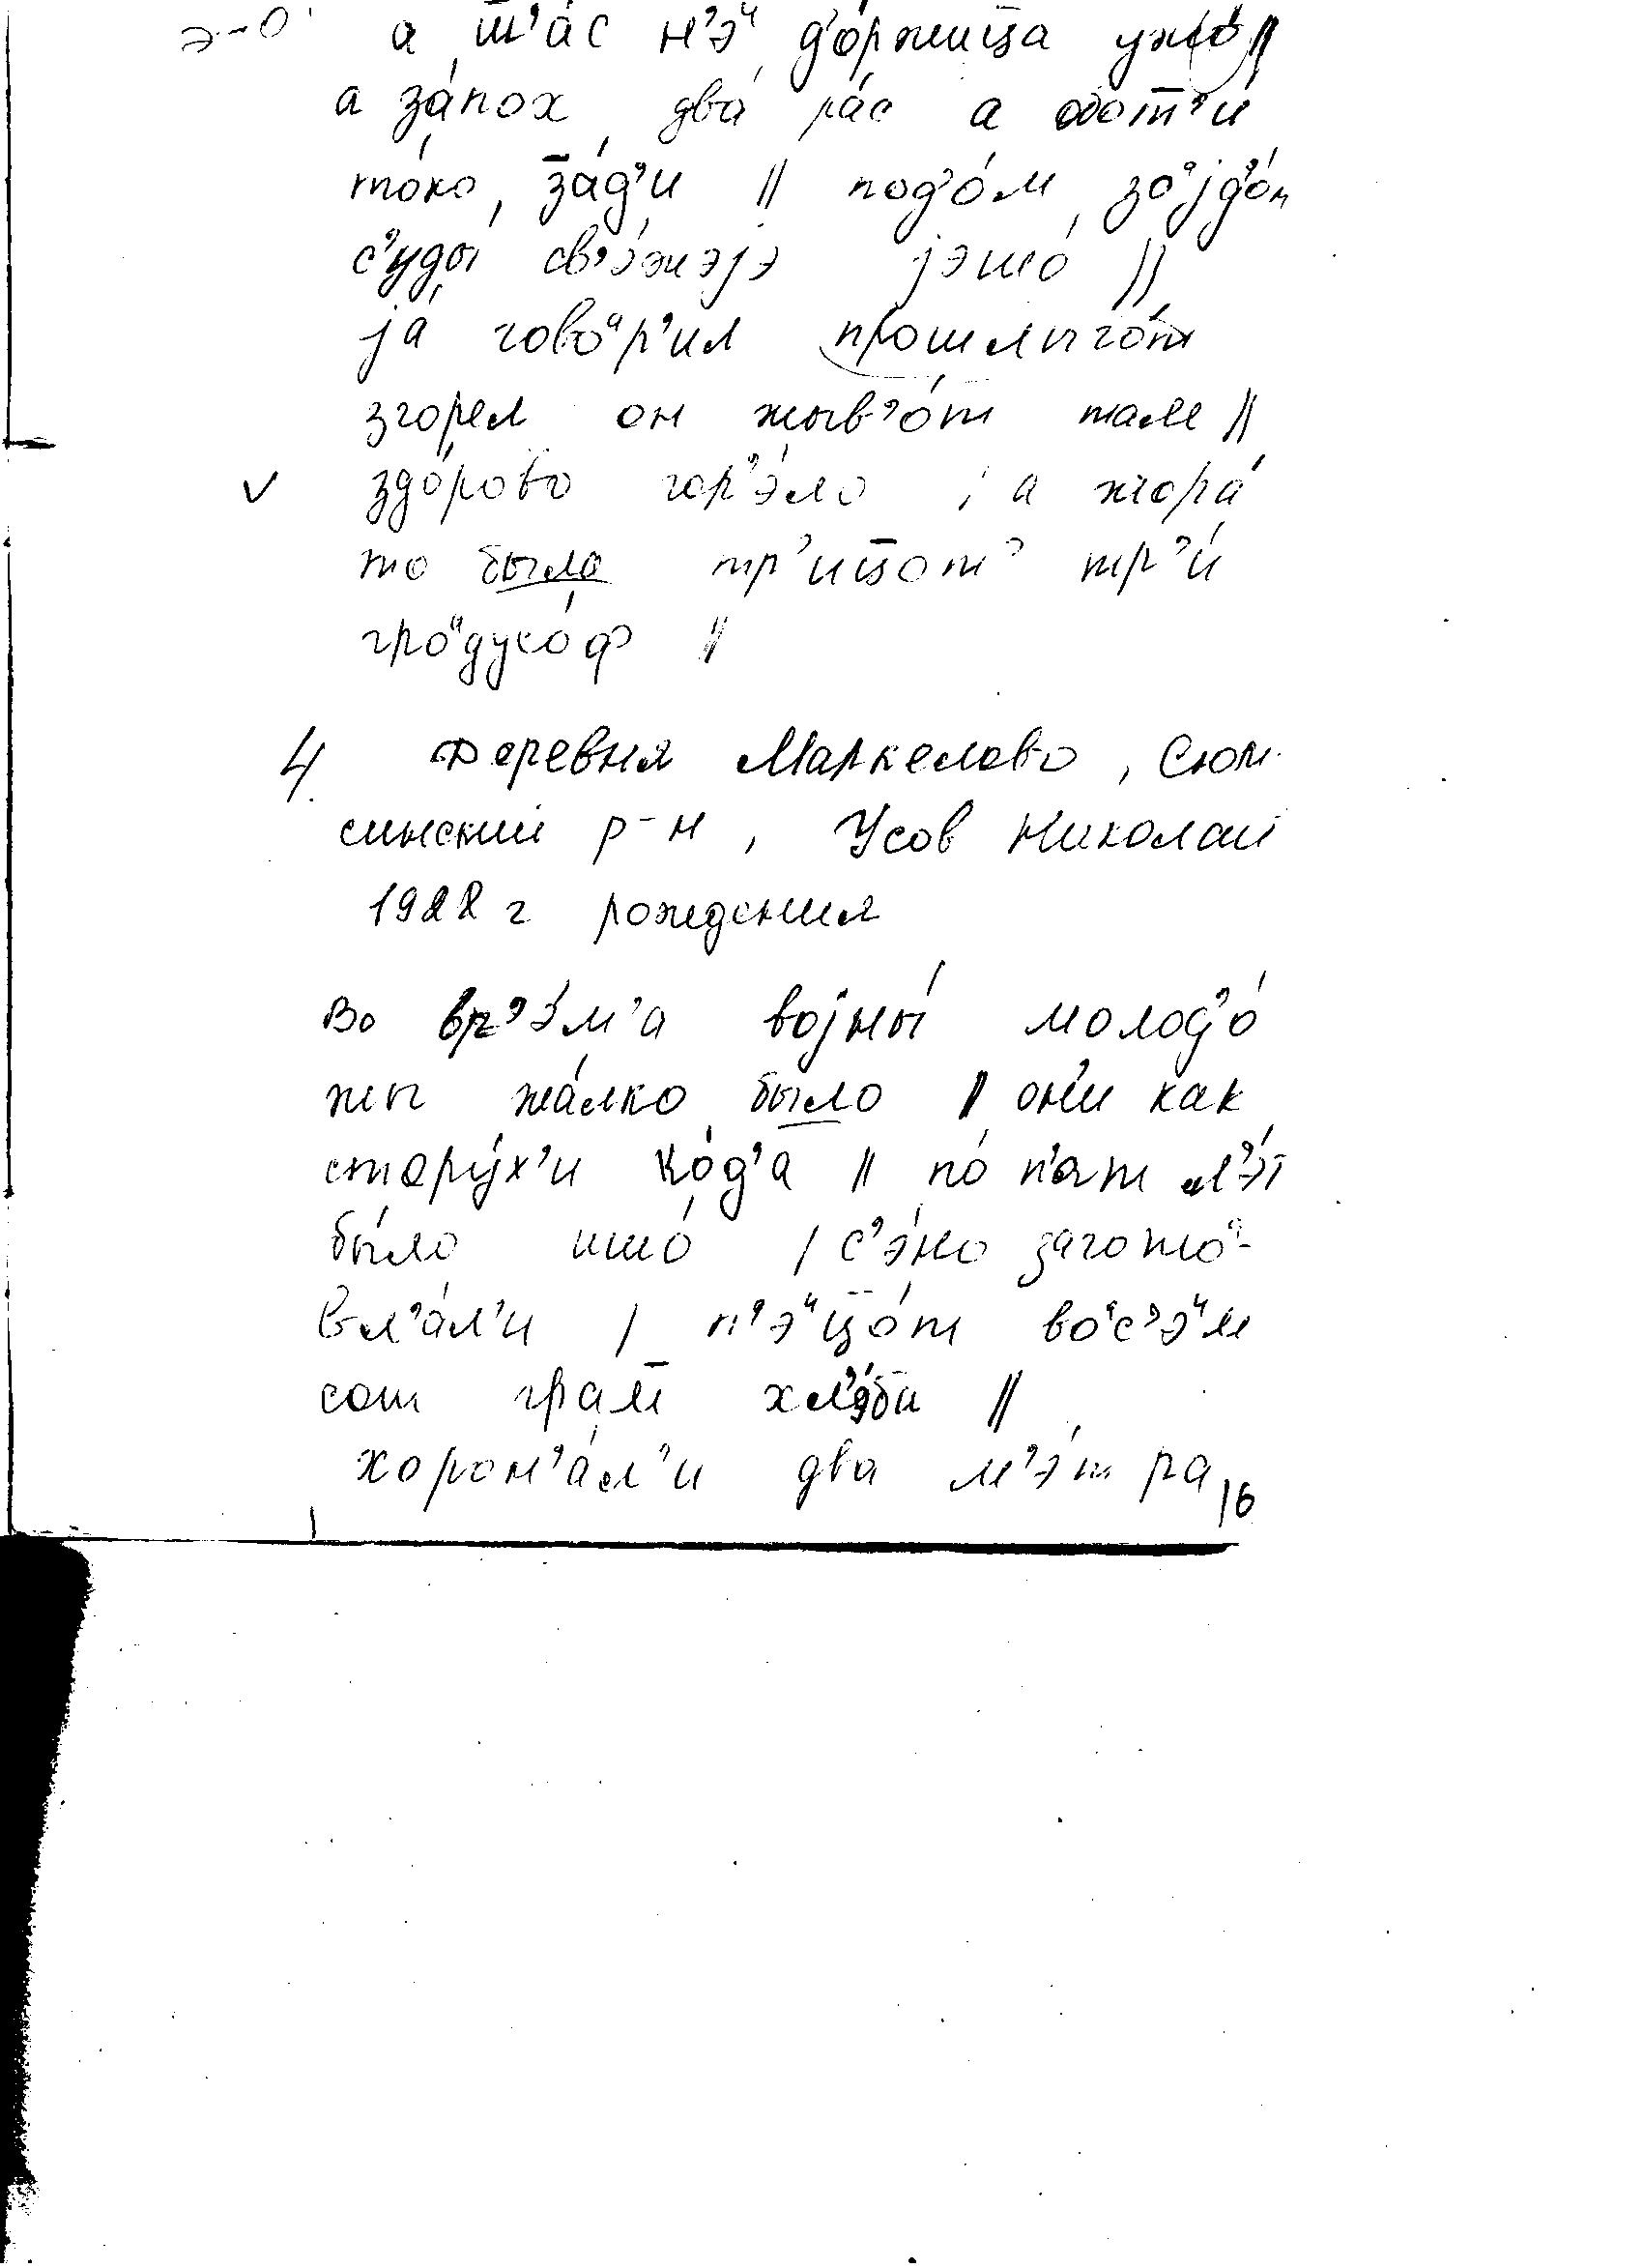 э-о
а ш̄'а́с н'э͏ᶦ д'о́ржиц̄а ужо́ ||
а за́пох два́ ра́с а обот'и́
то́ко, за́д'и || под'о́м, зоᵃjд'о́м
с'уды́ св'э́жэjэ jэшо́ ||
jа́ говоᵃр'ил прошлыго́т
згорел он жыв'о́т там ||
✓ здо́рово гор'э́ло, а жора́
то было тр'иц̄от' тр'и́
гроᵃдусо́ф ||
4. Деревня Маркелово, Сюм-
синский р-н, Усов Николай
1928 г рождения
Во вр'э́м'а воjны́ молод'о́
жы жа́лко было || он'и как
стару́х'и ко́д'а || по́ п'ат л'э́т
бы́ло ишо́ | с'э́но заготоᵃ-
вл'а́л'и | п'эᶦц̄о́т воᵃс'эᶦм
сот грам̄ хл'э́ба ||
хорон'а́л'и два м'э́тра
16